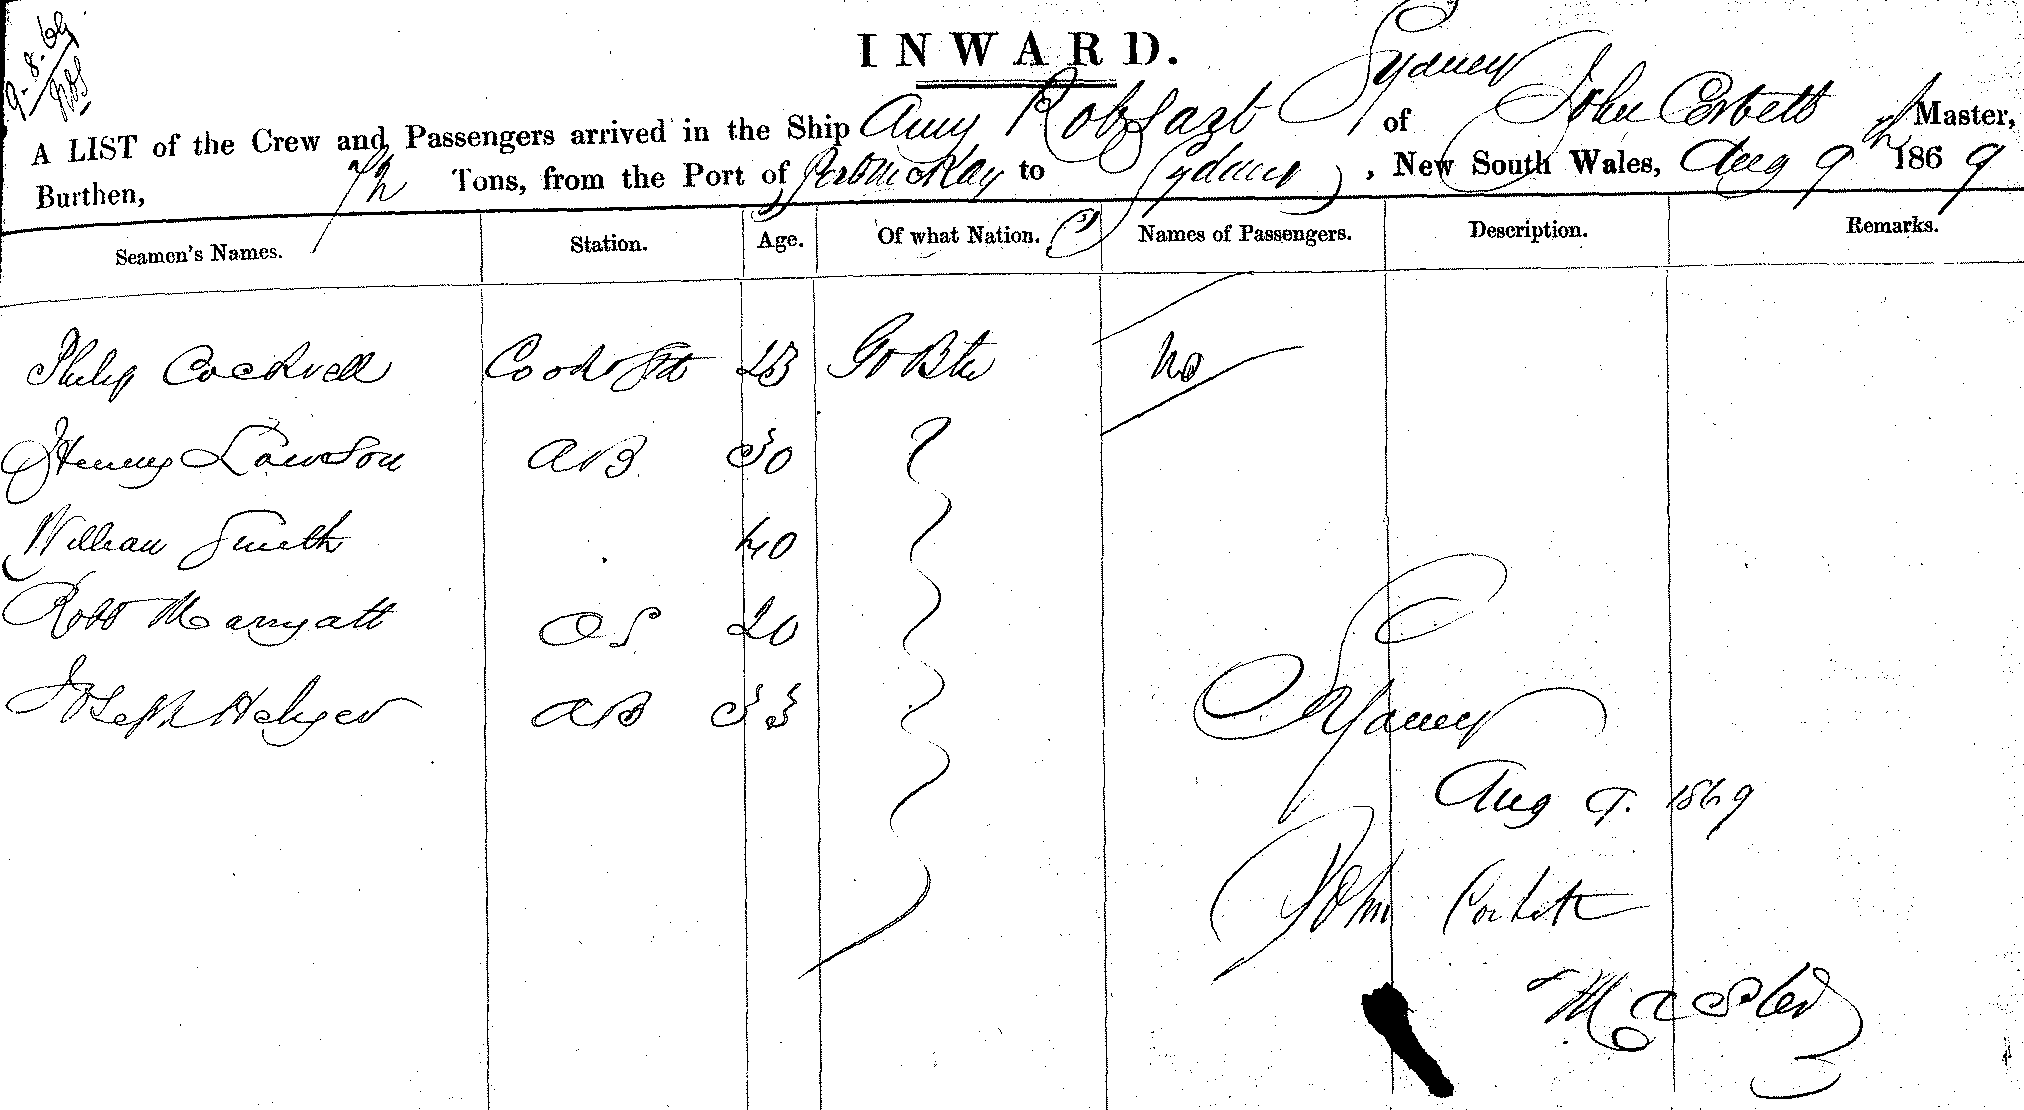 9.8.69
INWARD.
A LIST of the Crew and Passengers arrived in the Ship Amy Robsart Sydney of John Corbett Master,
Burthen, Tons, from the Port of to Sydney, New South Wales, Aug 9th 1869
Seamen's Names. Station. Age. Of what Nation. Names of Passengers. Description. Remarks.
Philip Cockrell Cook & Std 23 Gt Btn No
Henry Lawson AB 30
William Smith 40
Robt Marryatt OS 20
Joseph AB 33
Sydney
Aug 9. 1869
John Corbett
Master